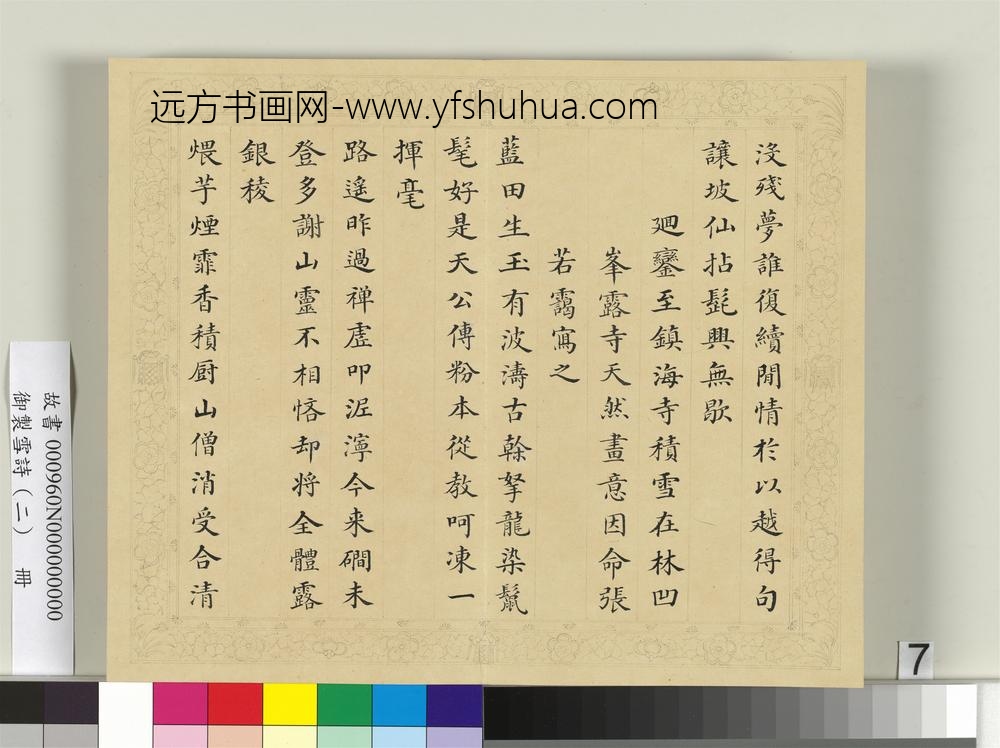 远方书画网-www.yfshuhua.com
沒殘夢誰復續閒情於以越得句
讓坡仙拈髭興無歇
廻鑾至鎮海寺積雪在林凹
峯露寺天然畫意因命張
若靄寫之
藍田生玉有波濤古榦拏龍染鬣
髦好是天公傳粉本從教呵凍一
揮毫
路遙昨過禅扂叩泥濘今来磵未
登多謝山靈不相悋却将全體露
銀稜
煨芋煙霏香積厨山僧消受合清
故書 000960N000000000
御製雪詩(二) 冊
7